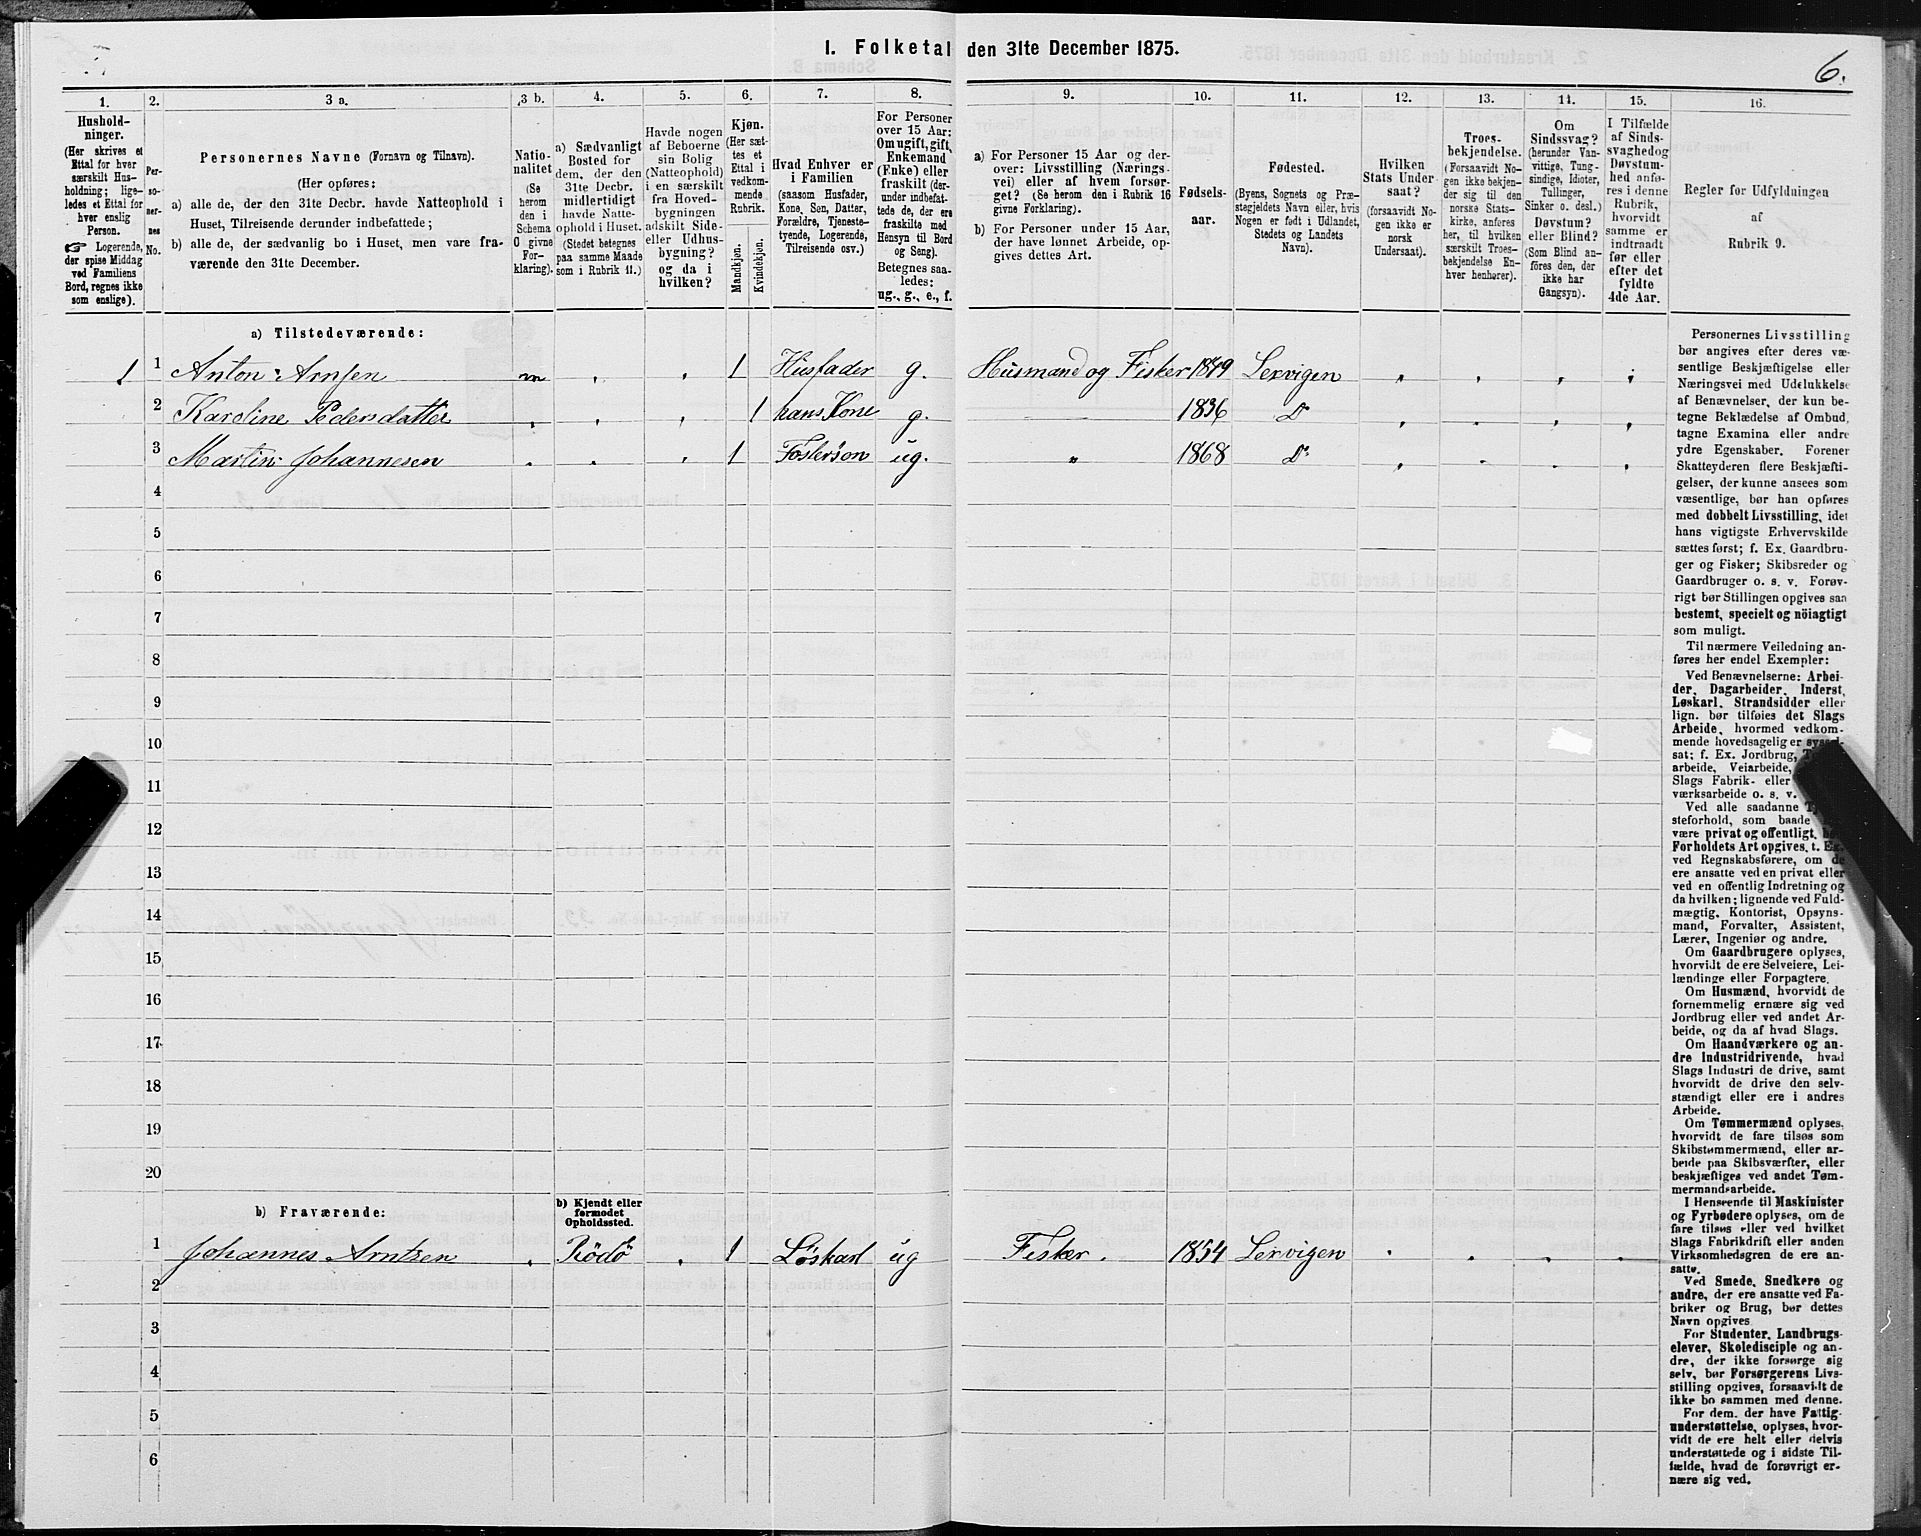 I. Folketal den 31te December 1875.
6.
1. 2. 3 a. 3 b. 4. 5. 6. 7. 8. 9. 10. 11. 12. 13. 14. 15. 16.
Hushold-
ninger.
(Her skrives et
Ettal for hver
særskilt Hus-
holdning; lige-
ledes et Ettal for
hver enslig
Person.
☞ Logerende,
der spise Middag
ved Familiens
Bord, regnes ikke
som enslige).
Per-
so-
ner-
nes
No.
Personernes Navne (Fornavn og Tilnavn).
(Her opføres:
a) alle de, der den 31te Decbr. havde Natteophold i
Huset, Tilreisende derunder indbefattede;
b) alle de, der sædvanlig bo i Huset, men vare fra-
værende den 31te December.
Natio-
nalitet
(Se
herom
den i
Schema
O givne
For-
klaring).
a) Sædvanligt
Bosted for
dem, der den
31te Decbr.
midlertidigt
havde Natte-
ophold i Huset.
(Stedet betegnes
paa samme Maade
som i Rubrik 11.)
Havde nogen
af Beboerne
sin Bolig
(Natteophold)
i en særskilt
fra Hoved-
bygningen
adskilt Side-
eller Udhus-
bygning?
og da i
hvilken?
Kjøn.
(Her sæt-
tes et
Ettal i
vedkom-
mende
Rubrik.
Mandkjøn.
Kvindekjøn.
Hvad Enhver er
i Familien
(saasom Husfader,
Kone, Søn, Datter,
Forældre, Tjeneste-
tyende, Logerende,
Tilreisende osv.)
For Personer
over 15 Aar:
Om ugift, gift,
Enkemand
(Enke) eller
fraskilt (der-
under indbefat-
tede de, der ere
fraskilte med
Hensyn til Bord
og Seng).
Betegnes saa-
ledes:
ug., g., e., f.
a) For Personer 15 Aar og der-
over: Livsstilling (Nærings-
vei) eller af hvem forsør-
get? (Se herom den i Rubrik 16
givne Forklaring).
b) For Personer under 15 Aar,
der have lønnet Arbeide, op-
gives dettes Art.
Fødsels-
aar.
Fødested.
(Byens, Sognets og Præ-
stegjeldets Navn eller, hvis
Nogen er født i Udlandet,
Stedets og Landets
Navn).
Hvilken
Stats Under-
saat?
(forsaavidt No-
gen ikke er
norsk
Undersaat).
Troes-
bekjendelse.
(Forsaavidt No-
gen ikke bekjen-
der sig til den
norske Stats-
kirke, anføres
her, til hvilken
særskilt Troes-
bekjendelse En-
hver henhører).
Om
Sindssvag?
(herunder Van-
vittige, Tung-
sindige, Idioter,
Tullinger,
Sinker o. desl.)
Døvstum?
eller Blind?
(Som Blind an-
føres den, der
ikke har
Gangsyn).
I Tilfælde
af Sinds-
svaghed og
Døvstum-
hed anfø-
res i denne
Rubrik,
hvorvidt
samme er
indtraadt
før eller
efter det
fyldte
4de Aar.
Regler for Udfyldningen
af
Rubrik 9.
a) Tilstedeværende:
1 1 Anton Arnsen 1 Husfader g. Husmand og Fisker 1849 Lervigen
2 Karoline Pedersdatter 1 hans Kone g. 1836 Do
3 Martin Johannesen 1 Fostersøn ug. 1868 Do
4
5
6
7
8
9
10
11
12
13
14
15
16
17
18
19
20
b) Fraværende:
b) Kjendt eller
formodet
Opholdssted.
1 Johannes Arntsen Rödö 1 Löskarl ug Fisker. 1854 Lervigen
2
3
4
5
6
Personernes Livsstilling
bør angives efter deres væ-
sentlige Beskjæftigelse eller
Næringsvei med Udelukkelse
af Benævnelser, der kun be-
tegne Beklædelse af Ombud,
tagne Examina eller andre
ydre Egenskaber. Forener
Skatteyderen flere Beskjæfti-
gelser, der kunne ansees som
væsentlige, bør han opføres
med dobbelt Livsstilling, idet
hans vigtigste Erhvervskilde
sættes først; f. Ex. Gaardbru-
ger og Fisker; Skibsreder og
Gaardbruger o. s. v. Forøv-
rigt bør Stillingen opgives saa
bestemt, specielt og nöiagtigt
som muligt.
Til nærmere Veiledning an-
føres her endel Exempler:
Ved Benævnelserne: Arbei-
der, Dagarbeider, Inderst,
Løskarl, Strandsidder eller
lign. bør tilføies det Slags
Arbeide, hvormed vedkom-
mende hovedsagelig er syssel-
sat; f. Ex. Jordbrug,
arbeide, Veiarbeide,
Slags Fabrik- eller
værksarbeide o. s. v.
Ved alle saadanne
steforhold, som baade
være privat og offentligt,
Forholdets Art opgives, t. Ex.
ved Regnskabsførere, om de
ere ansatte ved en privat eller
ved en offentlig Indretning og
da hvilken; lignende ved Fuld-
mægtig, Kontorist, Opsyns-
mand, Forvalter, Assistent,
Lærer, Ingeniør og andre.
Om Gaardbrugere oplyses,
hvorvidt de ere Selveiere, Lei-
lændinge eller Forpagtere.
Om Husmænd, hvorvidt de
fornemmelig ernære sig ved
Jordbrug eller ved andet Ar-
beide, og da af hvad Slags.
Om Haandværkere og an-
dre Industridrivende, hvad
Slags Industri de drive, samt
hvorvidt de drive den selv-
stændigt eller ere i andres
Arbeide.
Om Tømmermænd oplyses,
hvorvidt de fare tilsøs som
Skibstømmermænd, eller ar-
beide paa Skibsværfter, eller
beskjæftiges ved andet Tøm-
mermandsarbeide.
I Henseende til Maskinister
og Fyrbødere oplyses, om de
fare tilsøs eller ved hvilket
Slags Fabrikdrift eller anden
Virksomhedsgren de ere an-
satte.
Ved Smede, Snedkere og
andre, der ere ansatte ved Fa-
briker og Brug, bør dettes
Navn opgives.
For Studenter, Landbrugs-
elever, Skoledisciple og an-
dre, der ikke forsørge sig
selv, bør Forsørgerens Livs-
stilling opgives, forsaavidt de
ikke bo sammen med denne.
For dem, der have Fattig-
understøttelse, oplyses, hvor-
vidt de ere helt eller delvis
understøttede og i sidste Til-
fælde, hvad de forøvrigt er-
nære sig ved.